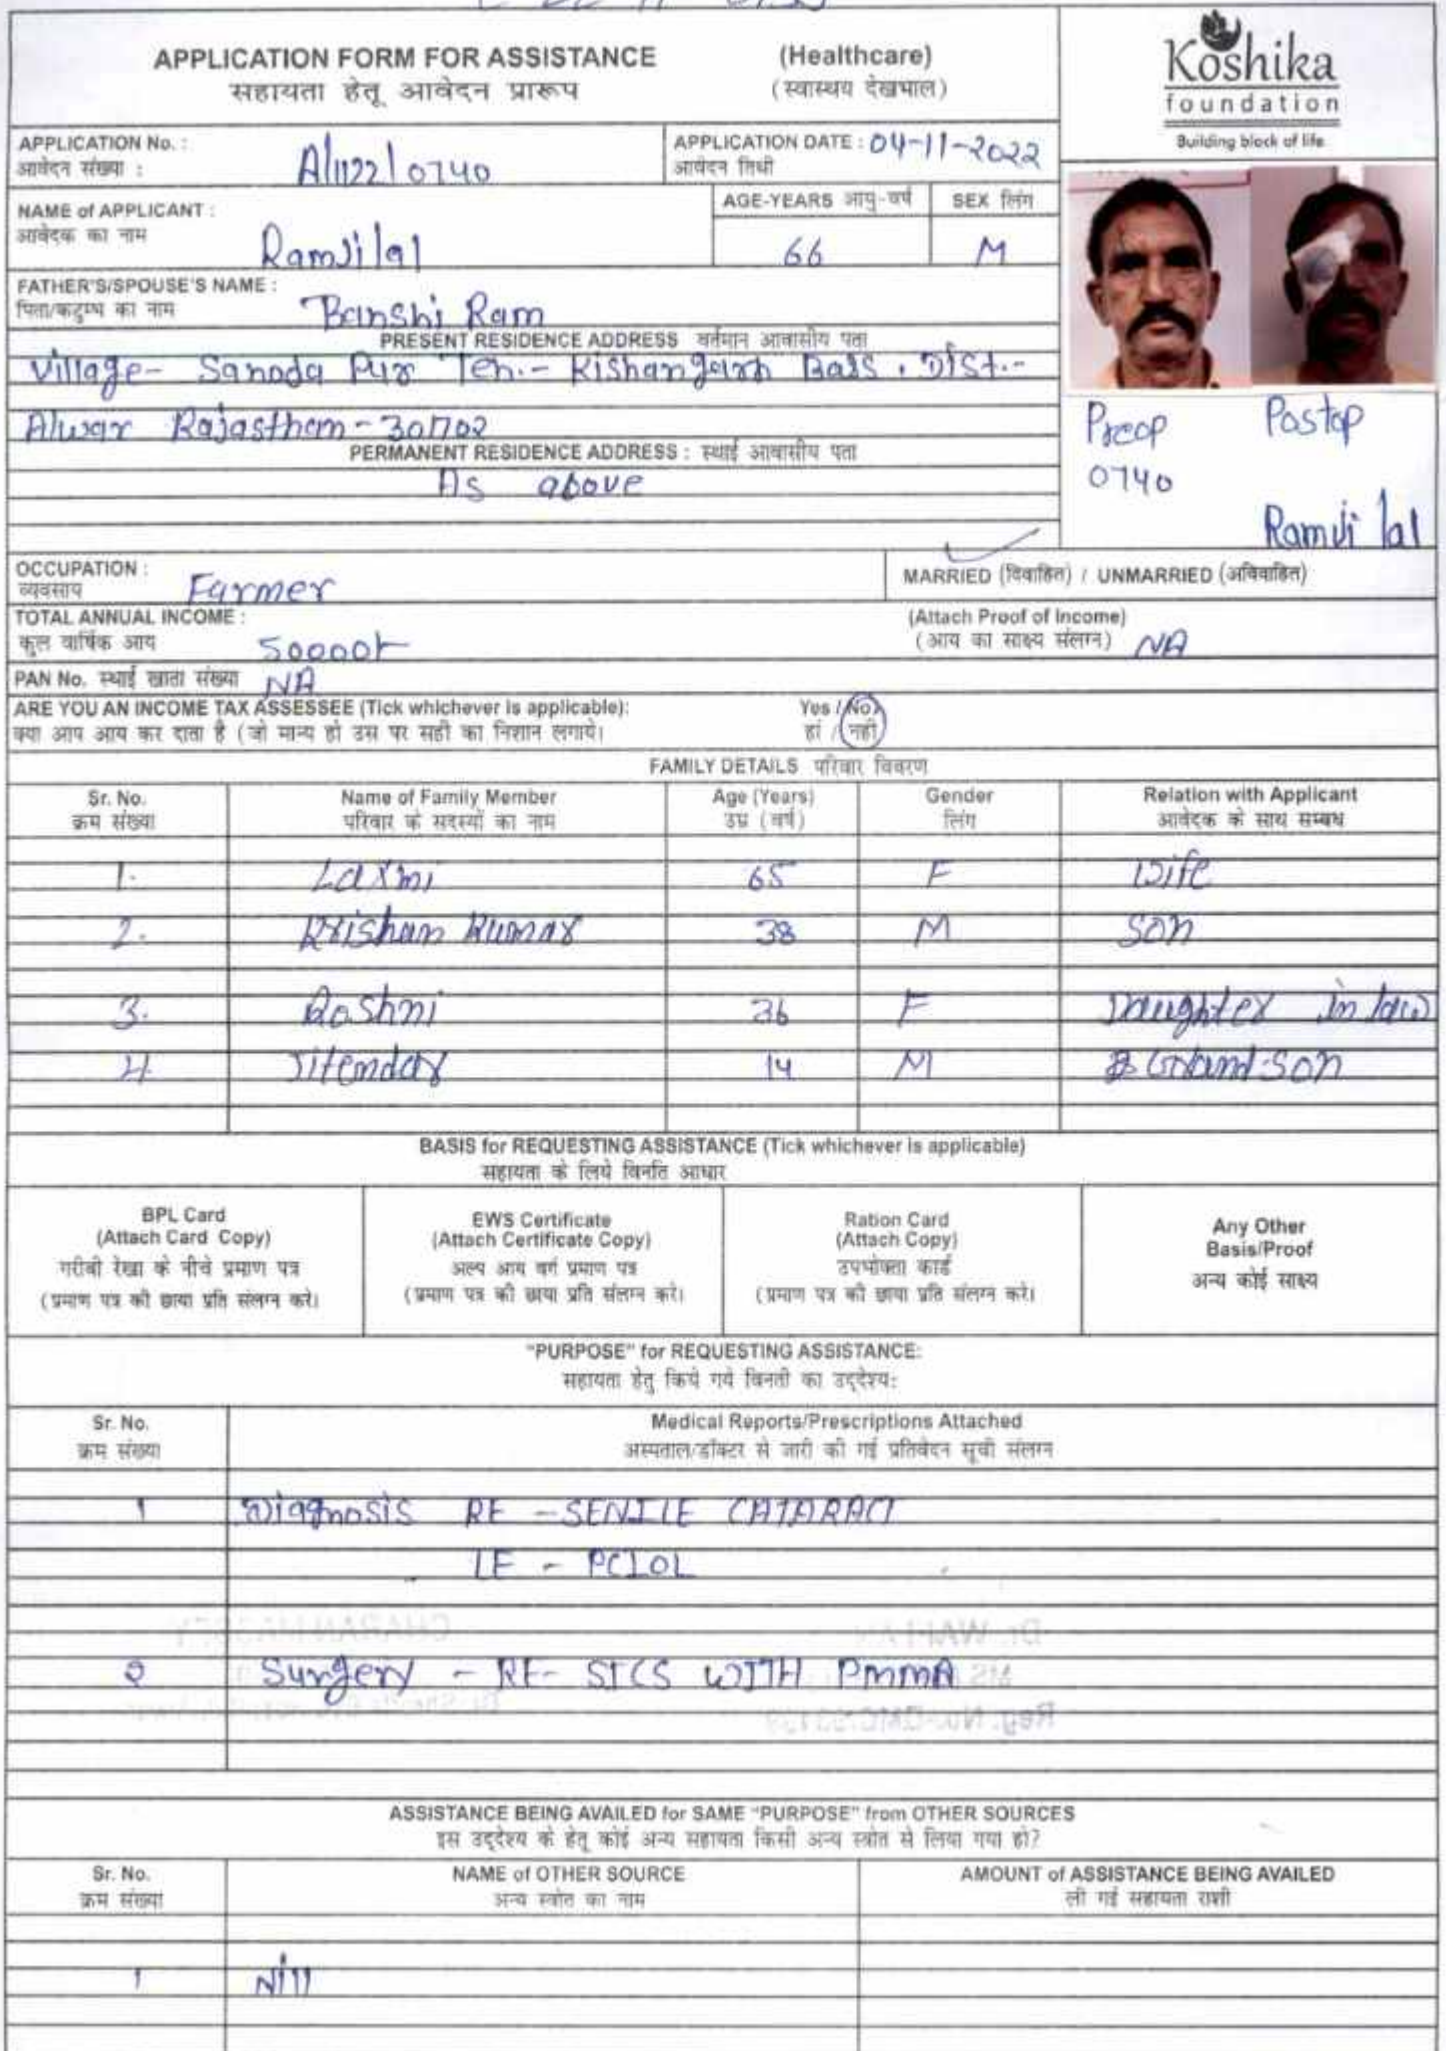 APPLICATION FORM FOR ASSISTANCE (Healthcare)
सहायता हेतू आवेदन प्रारूप (स्वास्थय देखभाल)
Koshika
foundation
Building block of life
APPLICATION No. :
आवेदन संख्या : A/1122/0740
APPLICATION DATE : 04-11-2022
आवेदन तिथी
NAME of APPLICANT :
आवेदक का नाम Ramjilal
AGE-YEARS आयु-वर्ष
66
SEX लिंग
M
FATHER'S/SPOUSE'S NAME :
पिता/कटुम्ब का नाम Banshi Ram
PRESENT RESIDENCE ADDRESS वर्तमान आवासीय पता
Village- Sanoda Pur Teh.- Kishangarh Bass, Dist.-
Alwar Rajasthan-301702
PERMANENT RESIDENCE ADDRESS : स्थाई आवासीय पता
As above
Preop Postop
0740
Ramji lal
OCCUPATION :
व्यवसाय Farmer
MARRIED (विवाहित) / UNMARRIED (अविवाहित)
TOTAL ANNUAL INCOME :
कुल वार्षिक आय 50000/-
(Attach Proof of Income)
(आय का साक्ष्य संलग्न) NA
PAN No. स्थाई खाता संख्या NA
ARE YOU AN INCOME TAX ASSESSEE (Tick whichever is applicable): Yes / No
क्या आप आय कर दाता है (जो मान्य हो उस पर सही का निशान लगाये। हां / नहीं
FAMILY DETAILS परिवार विवरण
Sr. No. Name of Family Member Age (Years) Gender Relation with Applicant
क्रम संख्या परिवार के सदस्यों का नाम उम्र (वर्ष) लिंग आवेदक के साथ सम्बध
1. Laxmi 65 F Wife
2. Krishan Kumar 38 M Son
3. Roshni 36 F Daughter in law
4 Jitendar 14 M Grand-son
BASIS for REQUESTING ASSISTANCE (Tick whichever is applicable)
सहायता के लिये विनति आधार
BPL Card
(Attach Card Copy)
गरीबी रेखा के नीचे प्रमाण पत्र
(प्रमाण पत्र की छाया प्रति संलग्न करे।
EWS Certificate
(Attach Certificate Copy)
अल्प आय वर्ग प्रमाण पत्र
(प्रमाण पत्र की छाया प्रति संलग्न करे।
Ration Card
(Attach Copy)
उपभोक्ता कार्ड
(प्रमाण पत्र की छाया प्रति संलग्न करे।
Any Other
Basis/Proof
अन्य कोई साक्ष्य
"PURPOSE" for REQUESTING ASSISTANCE:
सहायता हेतु किये गये विनती का उद्देश्य:
Sr. No. Medical Reports/Prescriptions Attached
क्रम संख्या अस्पताल/डॉक्टर से जारी की गई प्रतिवेदन सूची संलग्न
1 Diagnosis RE - SENILE CATARACT
LE - PCIOL
2 Surgery - RE- SICS WITH PMMA
ASSISTANCE BEING AVAILED for SAME "PURPOSE" from OTHER SOURCES
इस उद्देश्य के हेतु कोई अन्य सहायता किसी अन्य स्त्रोत से लिया गया हो?
Sr. No. NAME of OTHER SOURCE AMOUNT of ASSISTANCE BEING AVAILED
क्रम संख्या अन्य स्त्रोत का नाम ली गई सहायता राशी
1 Nill